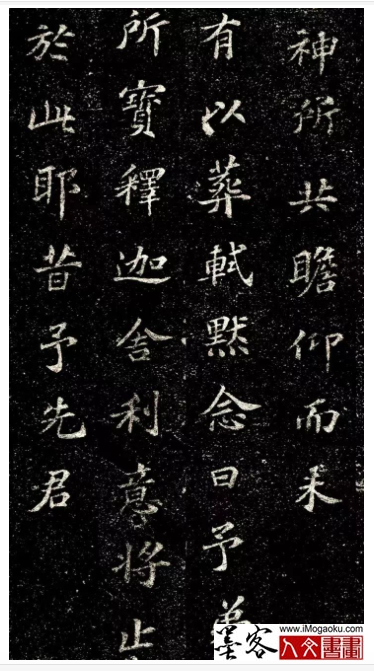 神所共瞻仰而未
有以葬軾默念曰予弟
所寶釋迦舍利意將止
於此耶昔予先君
墨客
www.iMogaoku.com
人文書畫